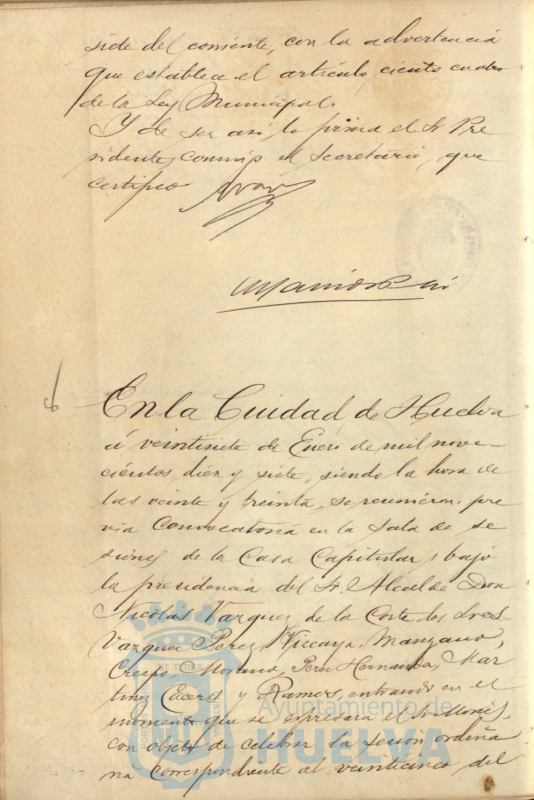 siete del corriente, con la advertencia
que establece el artículo ciento cuatro
de la Ley Municipal.
Y de ser así, lo firma el Sr. Pre
sidente, conmigo el Secretario, que
certifico
6
En la Ciudad de Huelva
á veintisiete de Enero de mil nove-
cientos diez y siete, siendo la hora de
las veinte y treinta, se reunieron, pre
via convocatoria en la Sala de se
siones de la Casa Capitular, bajo
la presidencia del Sr. Alcalde Don
Nicolas Vazquez de la Corte los Sres.
Vazquez Perez, Vizcaya, Manzano,
Crespo, Morano, Perez Hernandez, Mar
tinez y Ramos, entrando en el
momento que se expresará el Sr.
con objeto de celebrar la sesion ordina
ria correspondiente al veinticinco del
Ayuntamiento de
HUELVA